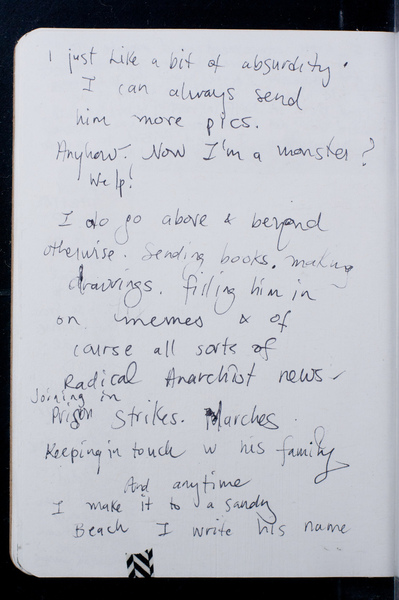 I just like a bit of absurdity.
I can always send
him more pics.
Anyhow. Now I'm a monster?
Welp!
I do go above & beyond
otherwise. Sending books. making
drawings. filling him in
on memes & of
course all sorts of
Radical Anarchist news
Joining in
Prison strikes. Marches.
Keeping in touch w his family
And anytime
I make it to a sandy
Beach I write his name